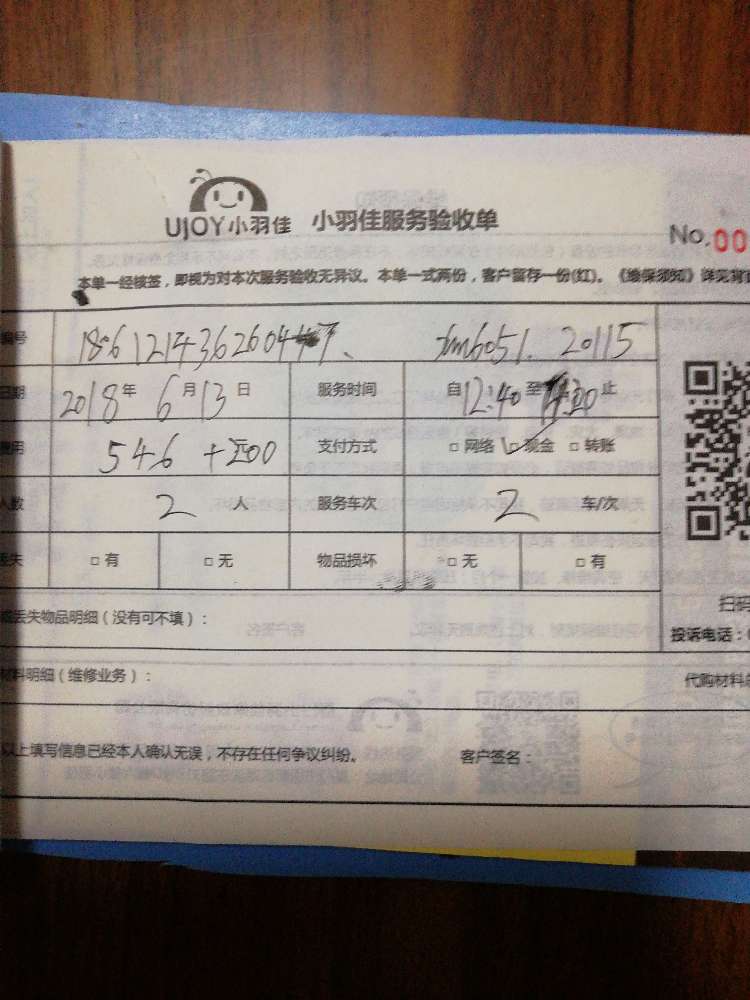 UJOY小羽佳 小羽佳服务验收单
No.00
本单一经核签，即视为对本次服务验收无异议。本单一式两份，客户留存一份(红)。《维保须知》详见背
编号
日期 2018年 6月13日 服务时间 自12:40至 止
费用 546 +200 支付方式 □网络 □现金 □转账
人数 2 人 服务车次 2 车/次
丢失 □有 □无 物品损坏 □无 □有
扫码
丢失物品明细（没有可不填）：
投诉电话：
材料明细（维修业务）：
代购材料
以上填写信息已经本人确认无误，不存在任何争议纠纷。 客户签名：